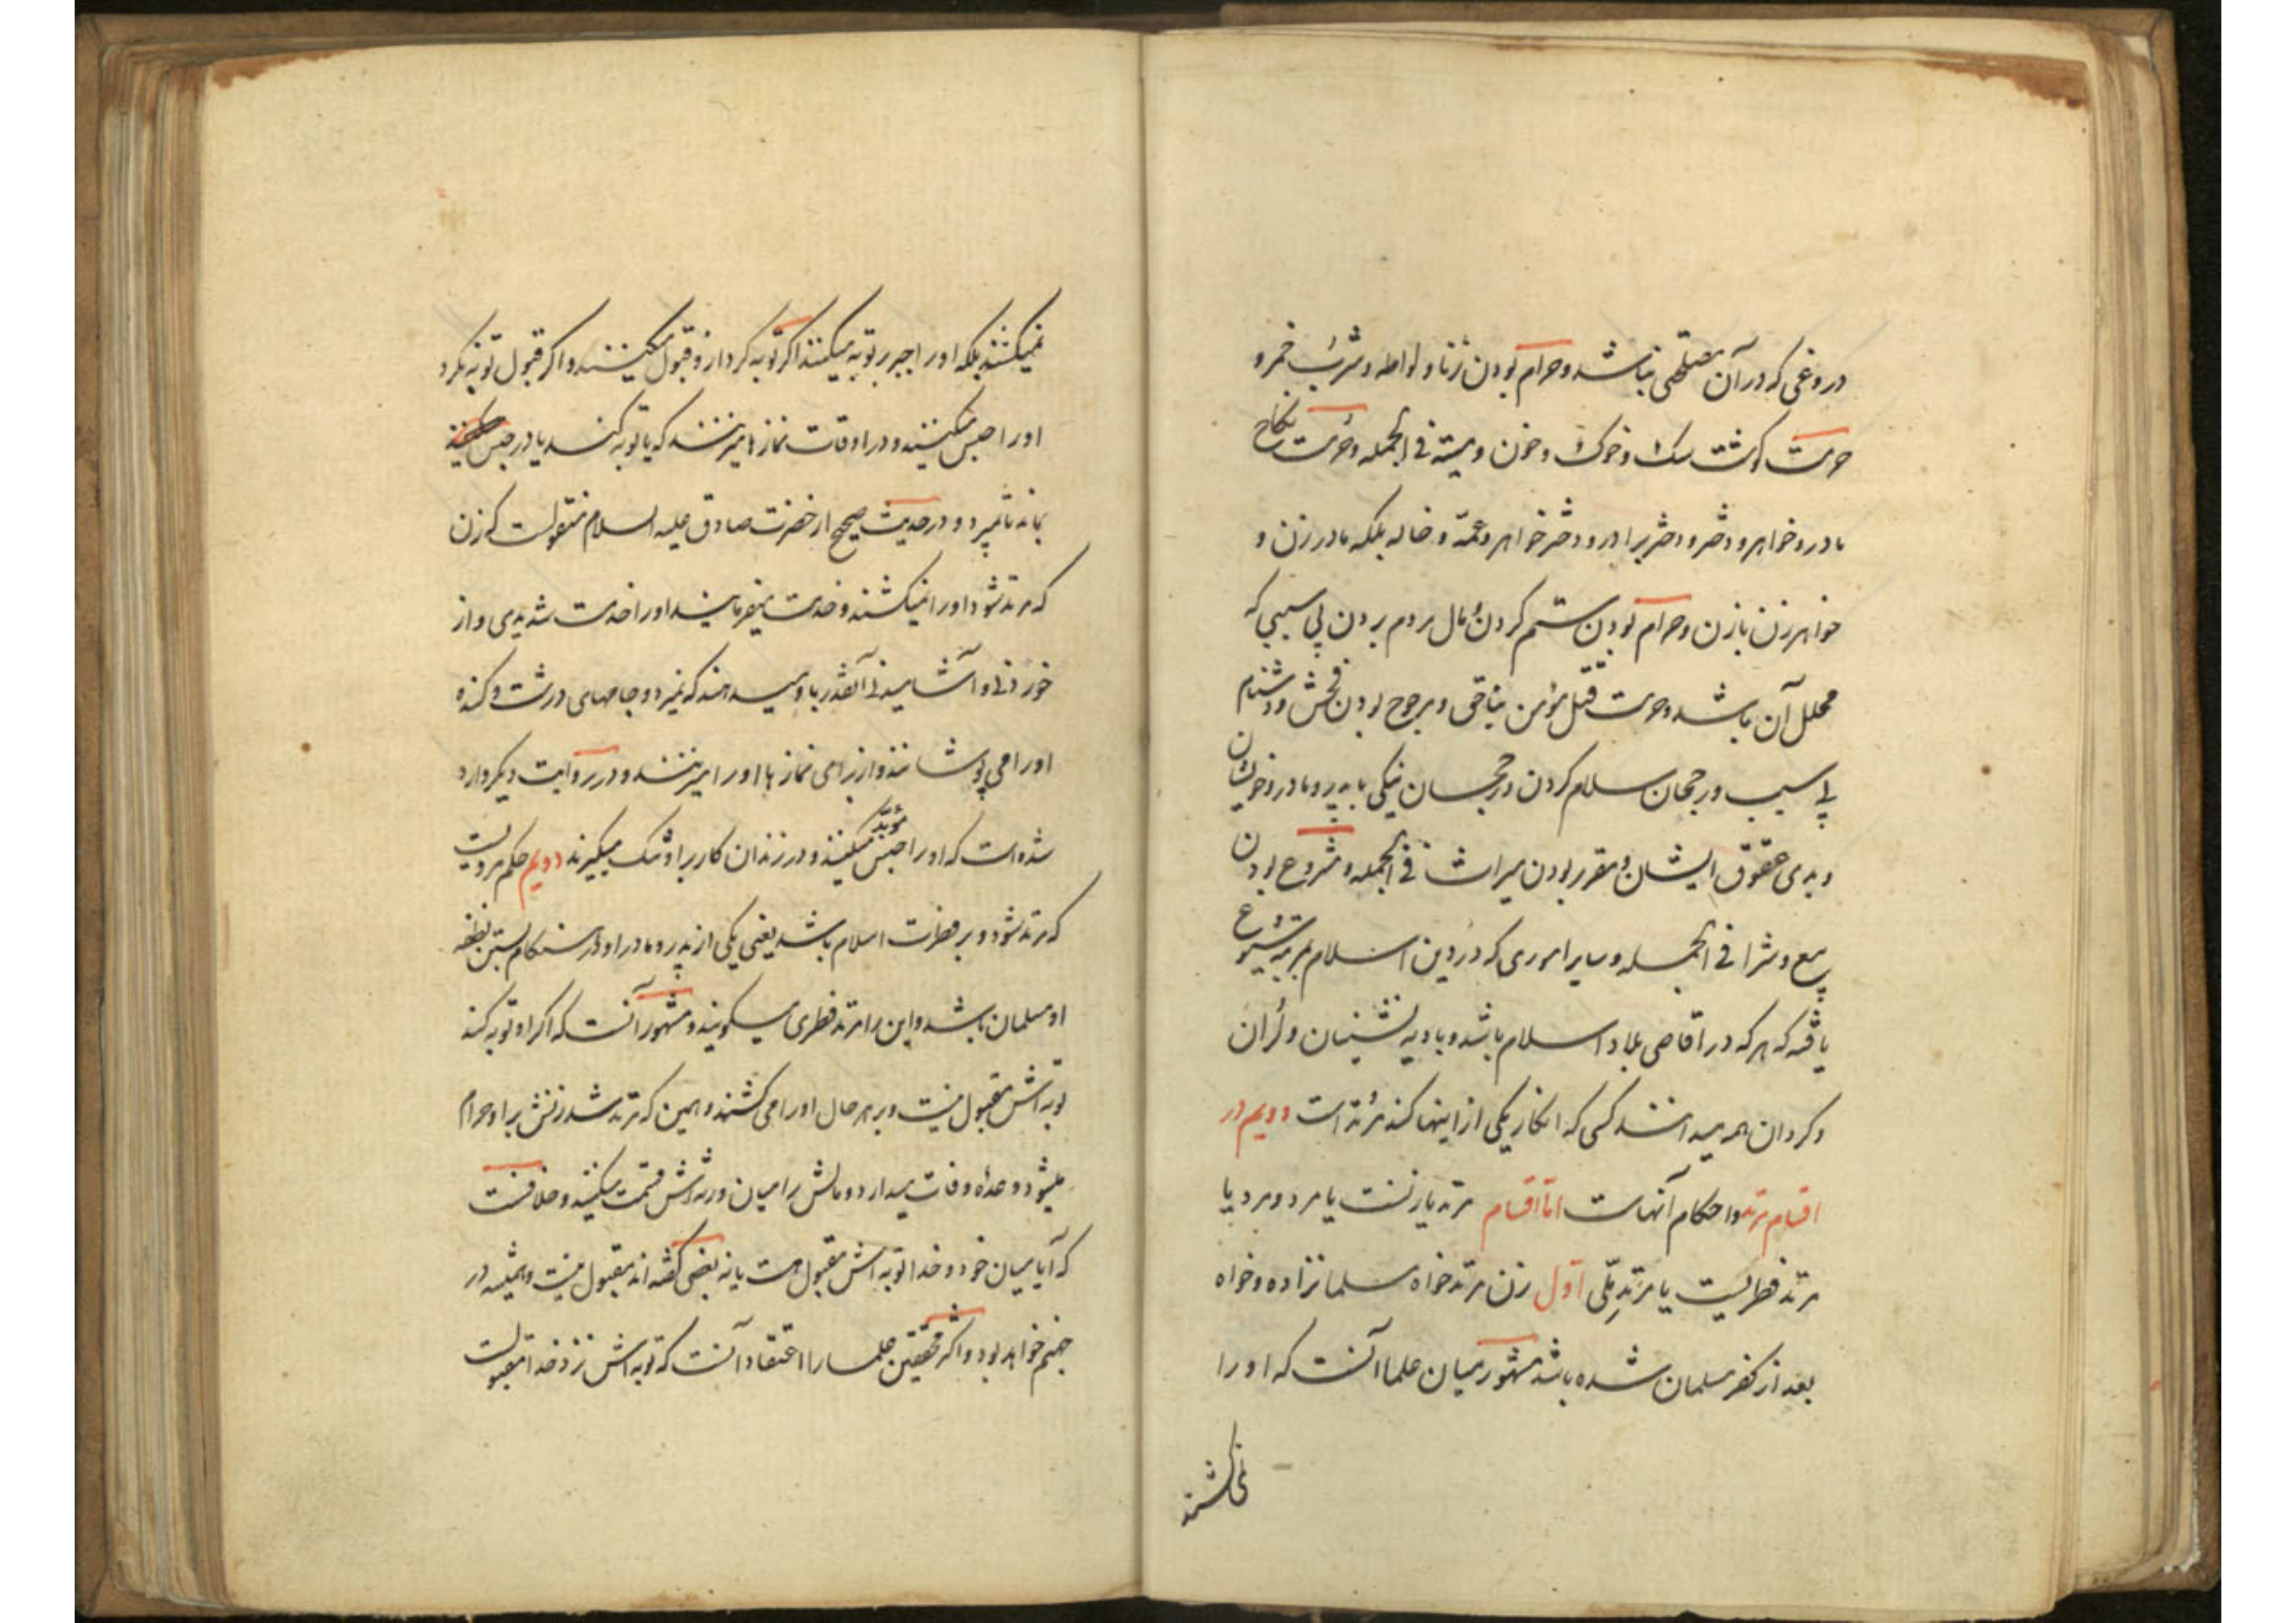 دروغی که در آن مصلحتی نباشد و حرام بودن زنا و لواطه و شرب خمر و
حرمت گوشت سک و خوک و خون و میته فی الجمله و حرمت نکاح
مادر و خواهر و دختر و دختر برادر و دختر خواهر و عمّه و خاله بلکه مادر زن و
خواهر زن بازن و حرام بودن ستم کردن و مال مردم بردن بی سببی که
محلل آن باشد و حرمت قتل مؤمن بناحق و مرجوح بودن فحش و دشنام
بی سبب و رجحان سلام کردن و رجحان نیکی با پدر و مادر و خویشان
و بدی عقوق ایشان و مقرر بودن میراث فی الجمله و مشروع بودن
بیع و شرا فی الجمله و سایر اموری که در دین اسلام بمرتبه شیوع
یافته که هر که در اقاصی بلاد اسلام باشد و بادیه نشینان و لران
و کردان همه میدانند کسی که انکار یکی از اینها کند مرتد است دویم در
اقسام مرتد و احکام آنهاست امّا اقسام مرتد یا زنست یا مرد و مرد یا
مرتد فطریست یا مرتدِ ملّی اوّل زن مرتد خواه مسلمانزاده و خواه
بعد از کفر مسلمان شده باشد مشهور میان علما آنست که او را
نمیکشند
نمیکشند بلکه او را جبر بر توبه میکنند اکر توبه کرد ازو قبول میکنند و اکر قبول توبه نکرد
او را حبس میکنند و در اوقات نماز ها میزنند که یا توبه کند یا در حبس
بماند تا بمیرد و در حدیث صحیح از حضرت صادق علیه السلام منقولست که زن
که مرتد شود او را نمیکشند و خدمت میفرمایند او را خدمت شدیدی و از
خوردنی و آشامیدنی آنقدر باو میدهند که نمیرد و جامهای درشت و کنده
او را می پوشانند و از برای نماز ها او را میزنند و در روایت دیکر وارد
شده است که او را حبس مؤبد میکنند و در زندان کار بر او تنک میکیرند دویم حکم مردیست
که مرتد شود و بر فطرت اسلام باشد یعنی یکی از پدر و مادر او در هنکام بستن نطفه
او مسلمان باشد و این را مرتد فطری میکویند و مشهور آنست که اکر او توبه کند
توبه اش مقبول نیست و بر هر حال او را می کشند و همین که مرتد شد زنش بر او حرام
میشود و عدّه وفات میدارد و مالش را میان ورثه اش قسمت میکنند و خلافست
که آیا میان خود و خدا توبه اش مقبول هست یا نه بعضی کفته اند مقبول نیست و همیشه در
جهنم خواهد بود و اکثر محققین علما را اعتقاد آنست که توبه اش نزد خدا مقبولست